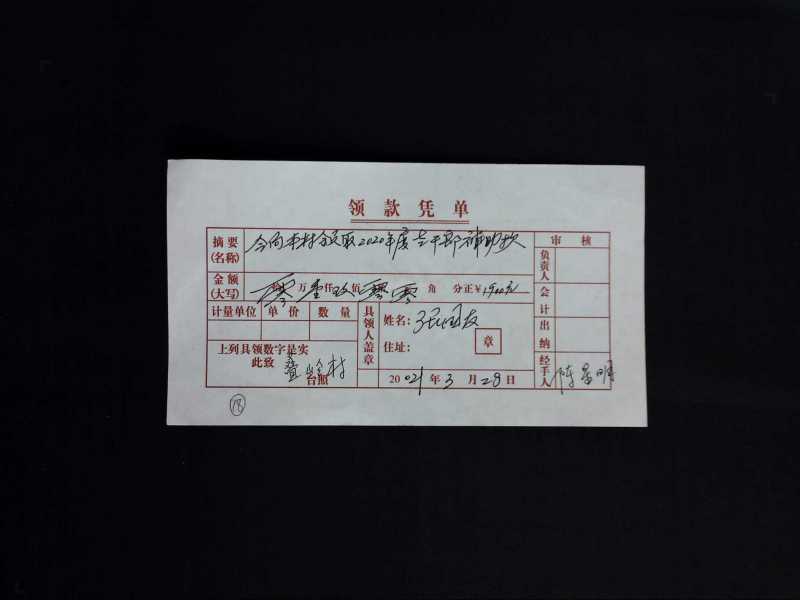 领款凭单
摘要(名称) 今向本村领取2020年度老干部补助款
审核
负责人
金额(大写) 零万壹仟玖佰零零角分正¥1900元
会计
计量单位 单价 数量
具领人盖章
姓名: 张国友
住址: 章
出纳
上列具领数字是实
此致
台照
2021年3月28日
经手人 陈
⑱